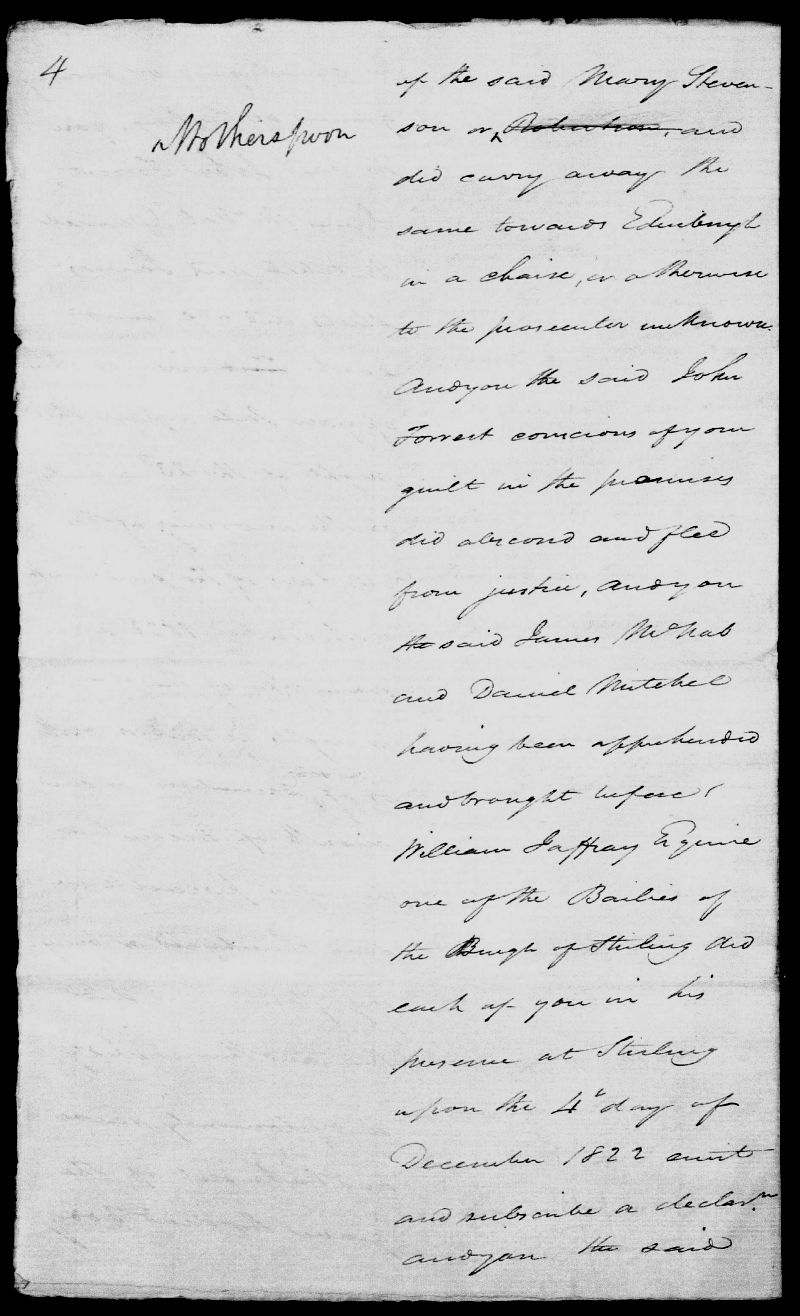 4
Motherspoon
of the said Mary Steven-
son or ^ Robertson, and
did carry away the
same towards Edinburgh
in a chaise, or otherwise
to the prosecutor unknown.
And you the said John
Forrest conscious of your
guilt in the premises
did abscond and flee
from justice, and you
the said James McNab
and Daniel Mitchel
having been apprehended
and brought before
William Jaffray Esquire
one of the Bailies of
the Burgh of Stirling did
each of you in his
presence at Stirling
upon the 4th day of
December 1822 emit
and subscribe a declar.n
and you the said